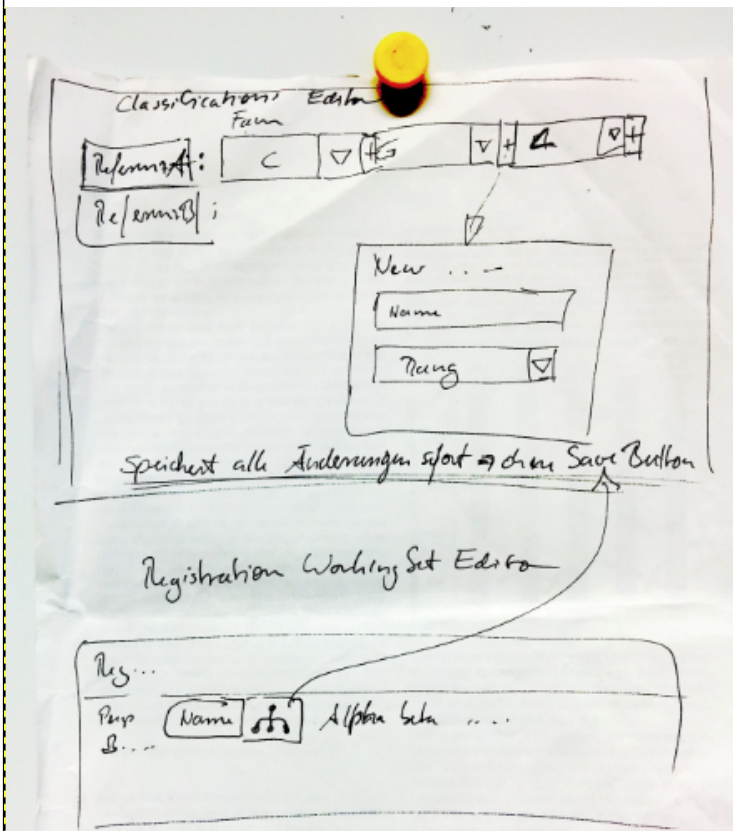 Classifications Editor
Fam
ReferenzA : C + G + 4 +
ReferenzB :
New ...
Name
Rang
Speichert alle Änderungen sofort => ohne Save Button
Registration Working Set Editor
Reg...
Name Alpha beta ....
B....